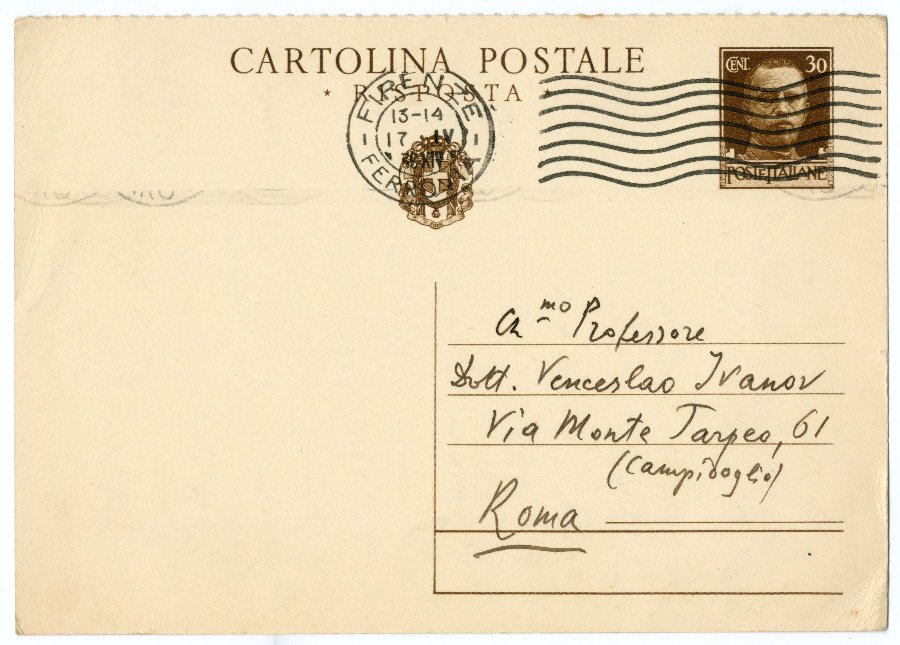 CARTOLINA POSTALE
* RISPOSTA *
CENT. 30
POSTE ITALIANE
FIRENZE
13-14
17 · IV
FERROVIA
Ch.mo Professore
Dott. Venceslao Ivanov
Via Monte Tarpeo, 61
(Campidoglio)
Roma